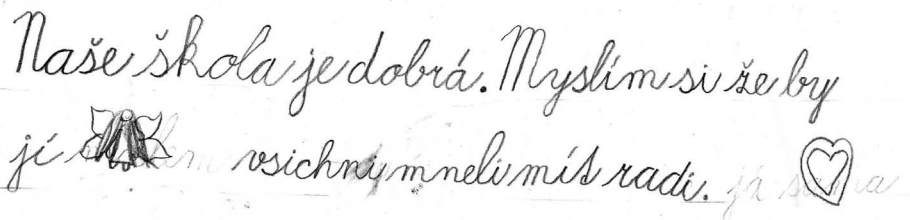 Naše škola je dobrá. Myslím si že by
jí vsichni mneli mít radi.